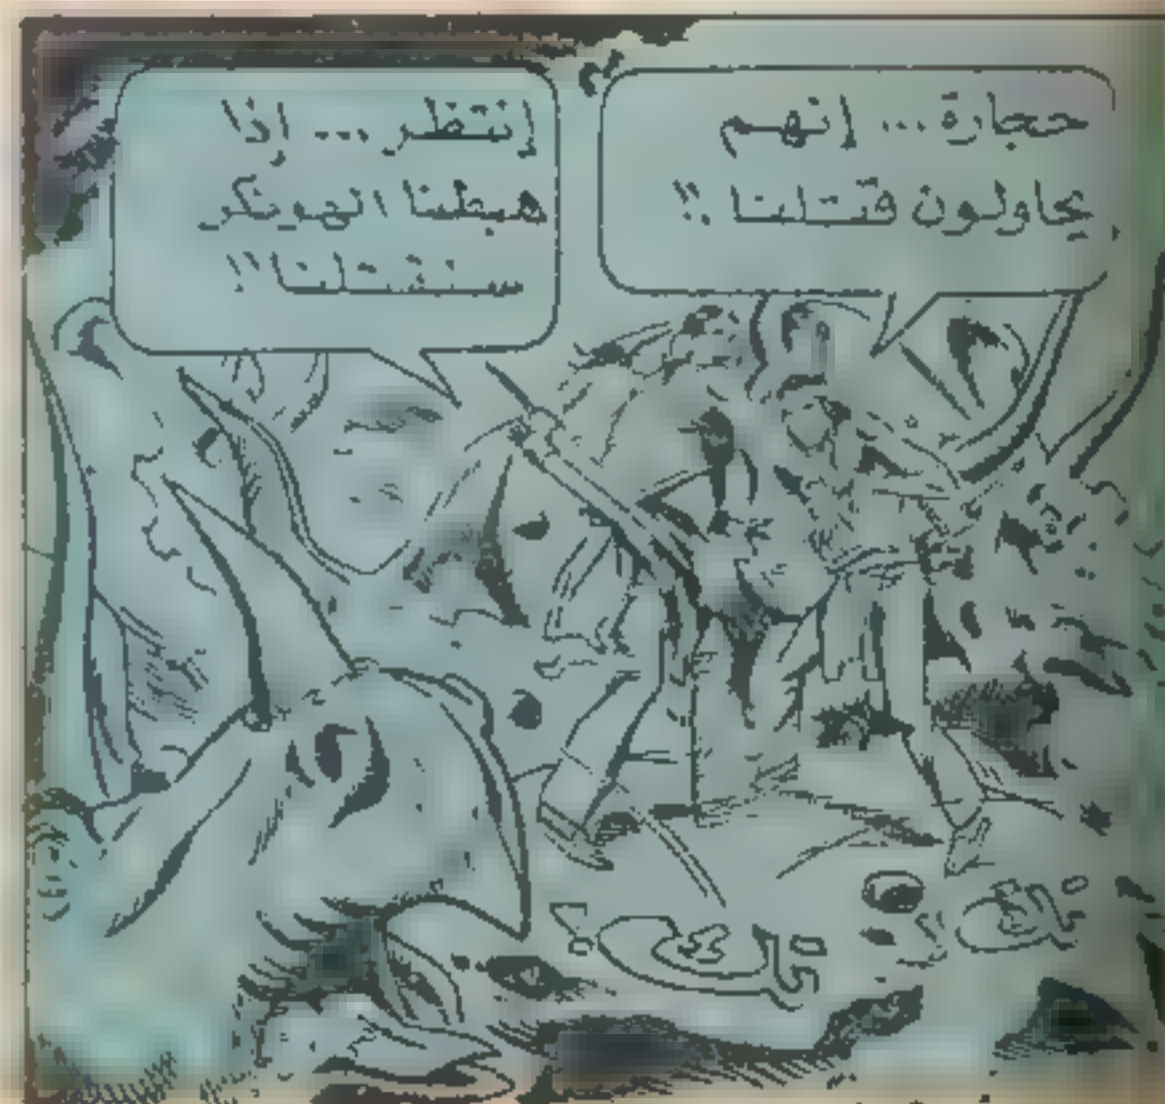 حجارة... إنهم
يحاولون قتلنا !!
إنتظر... إذا
هبطنا الهونكر
ستقتلنا !!